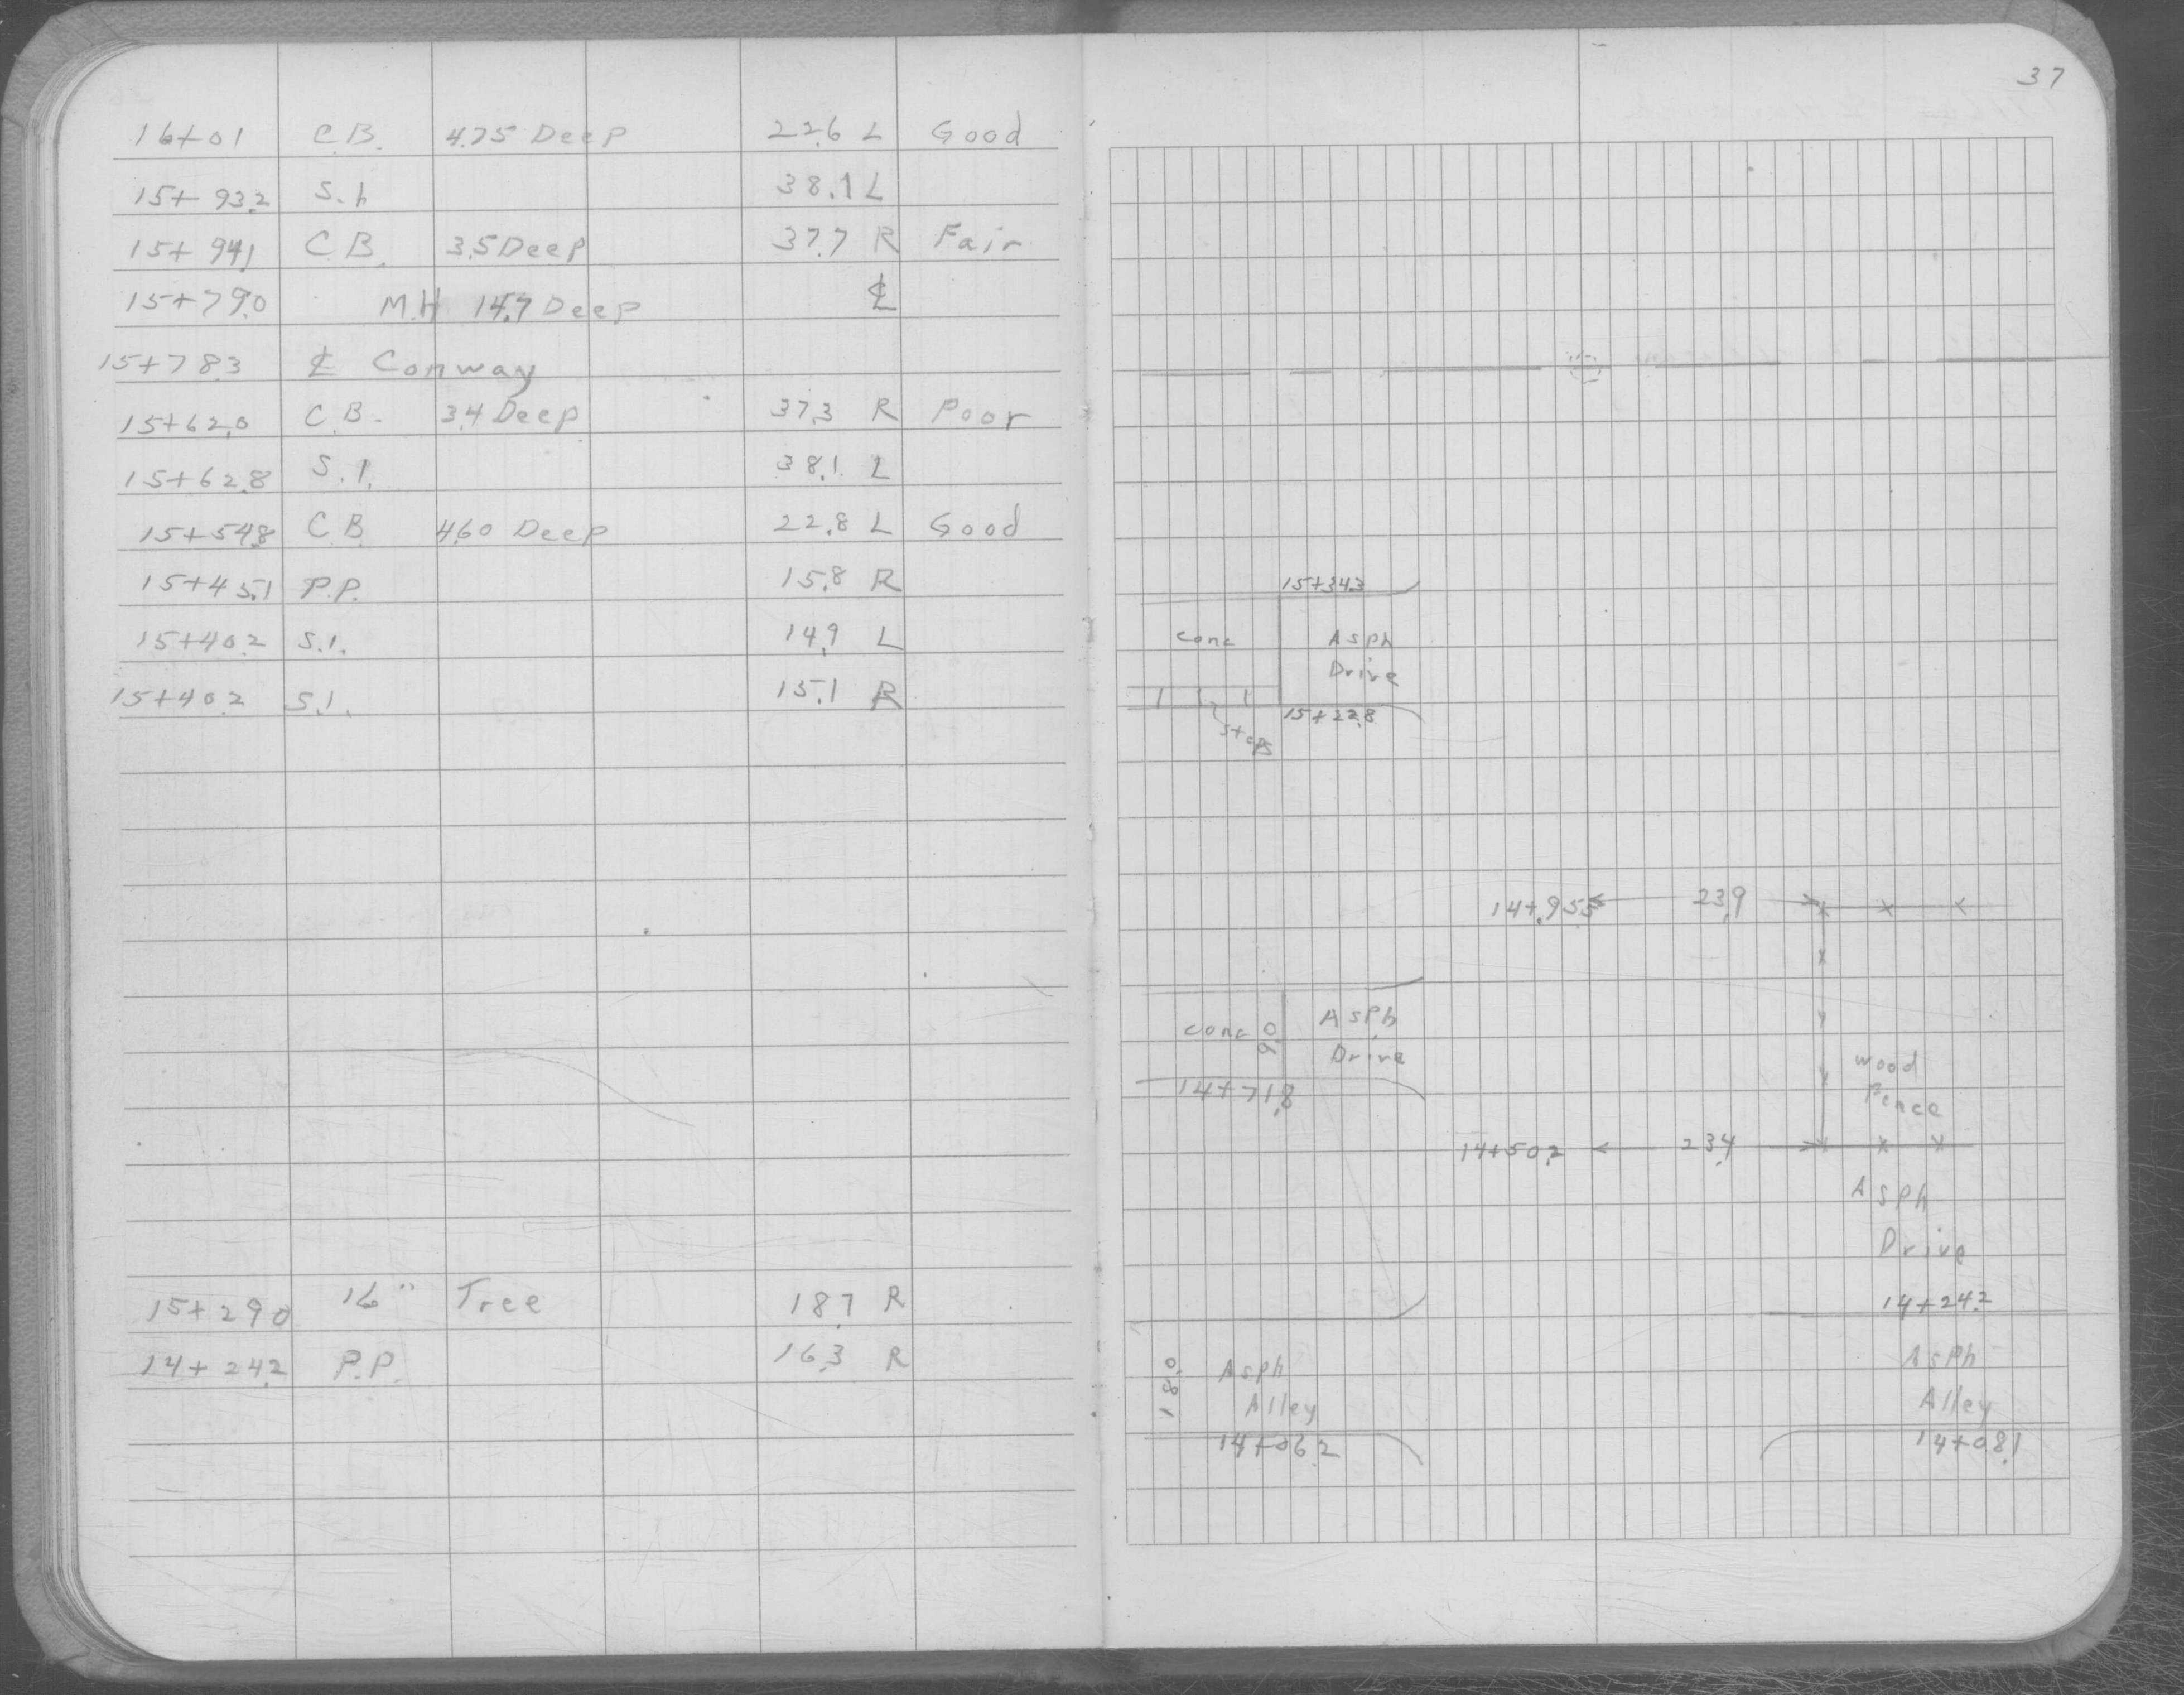 16+01 C.B. 4.75 Deep 22.6 L Good
15+93.2 S.I. 38.1 L
15+94.1 C.B. 3.5 Deep 37.7 R Fair
15+79.0 M.H 14.7 Deep ℄
15+78.3 ℄ Conway
15+62.0 C.B. 3.4 Deep 37.3 R Poor
15+62.8 S.I. 38.1 L
15+54.8 C.B. 4.60 Deep 22.8 L Good
15+45.1 P.P. 15.8 R
15+40.2 S.I. 14.9 L
15+40.2 S.I. 15.1 R
15+29.0 16" Tree 18.7 R
14+24.2 P.P. 16.3 R
37
15+34.3
Conc Asph
Drive
15+22.8
Steps
14+95.5 23.9
Conc 9.0 Asph
Drive
14+71.8
Wood
Fence
14+50.2 23.4
Asph
Drive
14+24.2
18.0 Asph
Alley
14+06.2
Asph
Alley
14+08.1